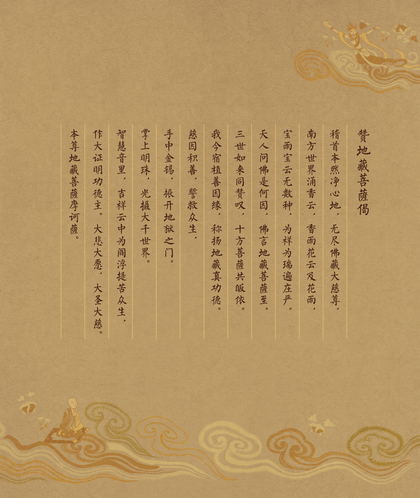 赞地藏菩萨偈
稽首本然净心地，无尽佛藏大慈尊，
南方世界涌香云，香雨花云及花雨，
宝雨宝云无数种，为祥为瑞遍庄严。
天人问佛是何因，佛言地藏菩萨至。
三世如来同赞叹，十方菩萨共皈依。
我今宿植善因缘，称扬地藏真功德。
慈因积善，誓救众生，
手中金锡，振开地狱之门。
掌上明珠，光摄大千世界。
智慧音里，吉祥云中为阎浮提苦众生，
作大证明功德主。大悲大愿，大圣大慈。
本尊地藏菩萨摩诃萨。